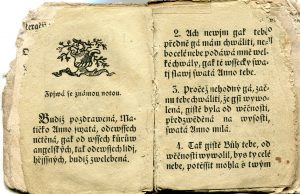 Zpjwá se známou notou.
Budiž pozdrawená, Ma-
tičko Anno swatá, odewssech
nctěná, gak od wssech kůrůw
angelských, tak odewssech lidí,
hřjssných, budiž zwelebená.
2. Ach newjm gak tebe
předně gá mám chwáliti, ne-
bo celé nebe podáwá mné wel-
ké chwály, gak té wssecky swa-
tj slawj swatá Anno tebe.
3. Pročež nehodný gá, zač-
nu tebe chwáliti, že gsy wywo-
lená, gistě byla od wěčnosti,
předzwěděná na wysosti,
swatá Anno milá.
4. Tak gistě Bůh tebe, od
wěčnosti wywolil, bys ty celé
nebe, potěssit mohla s twým